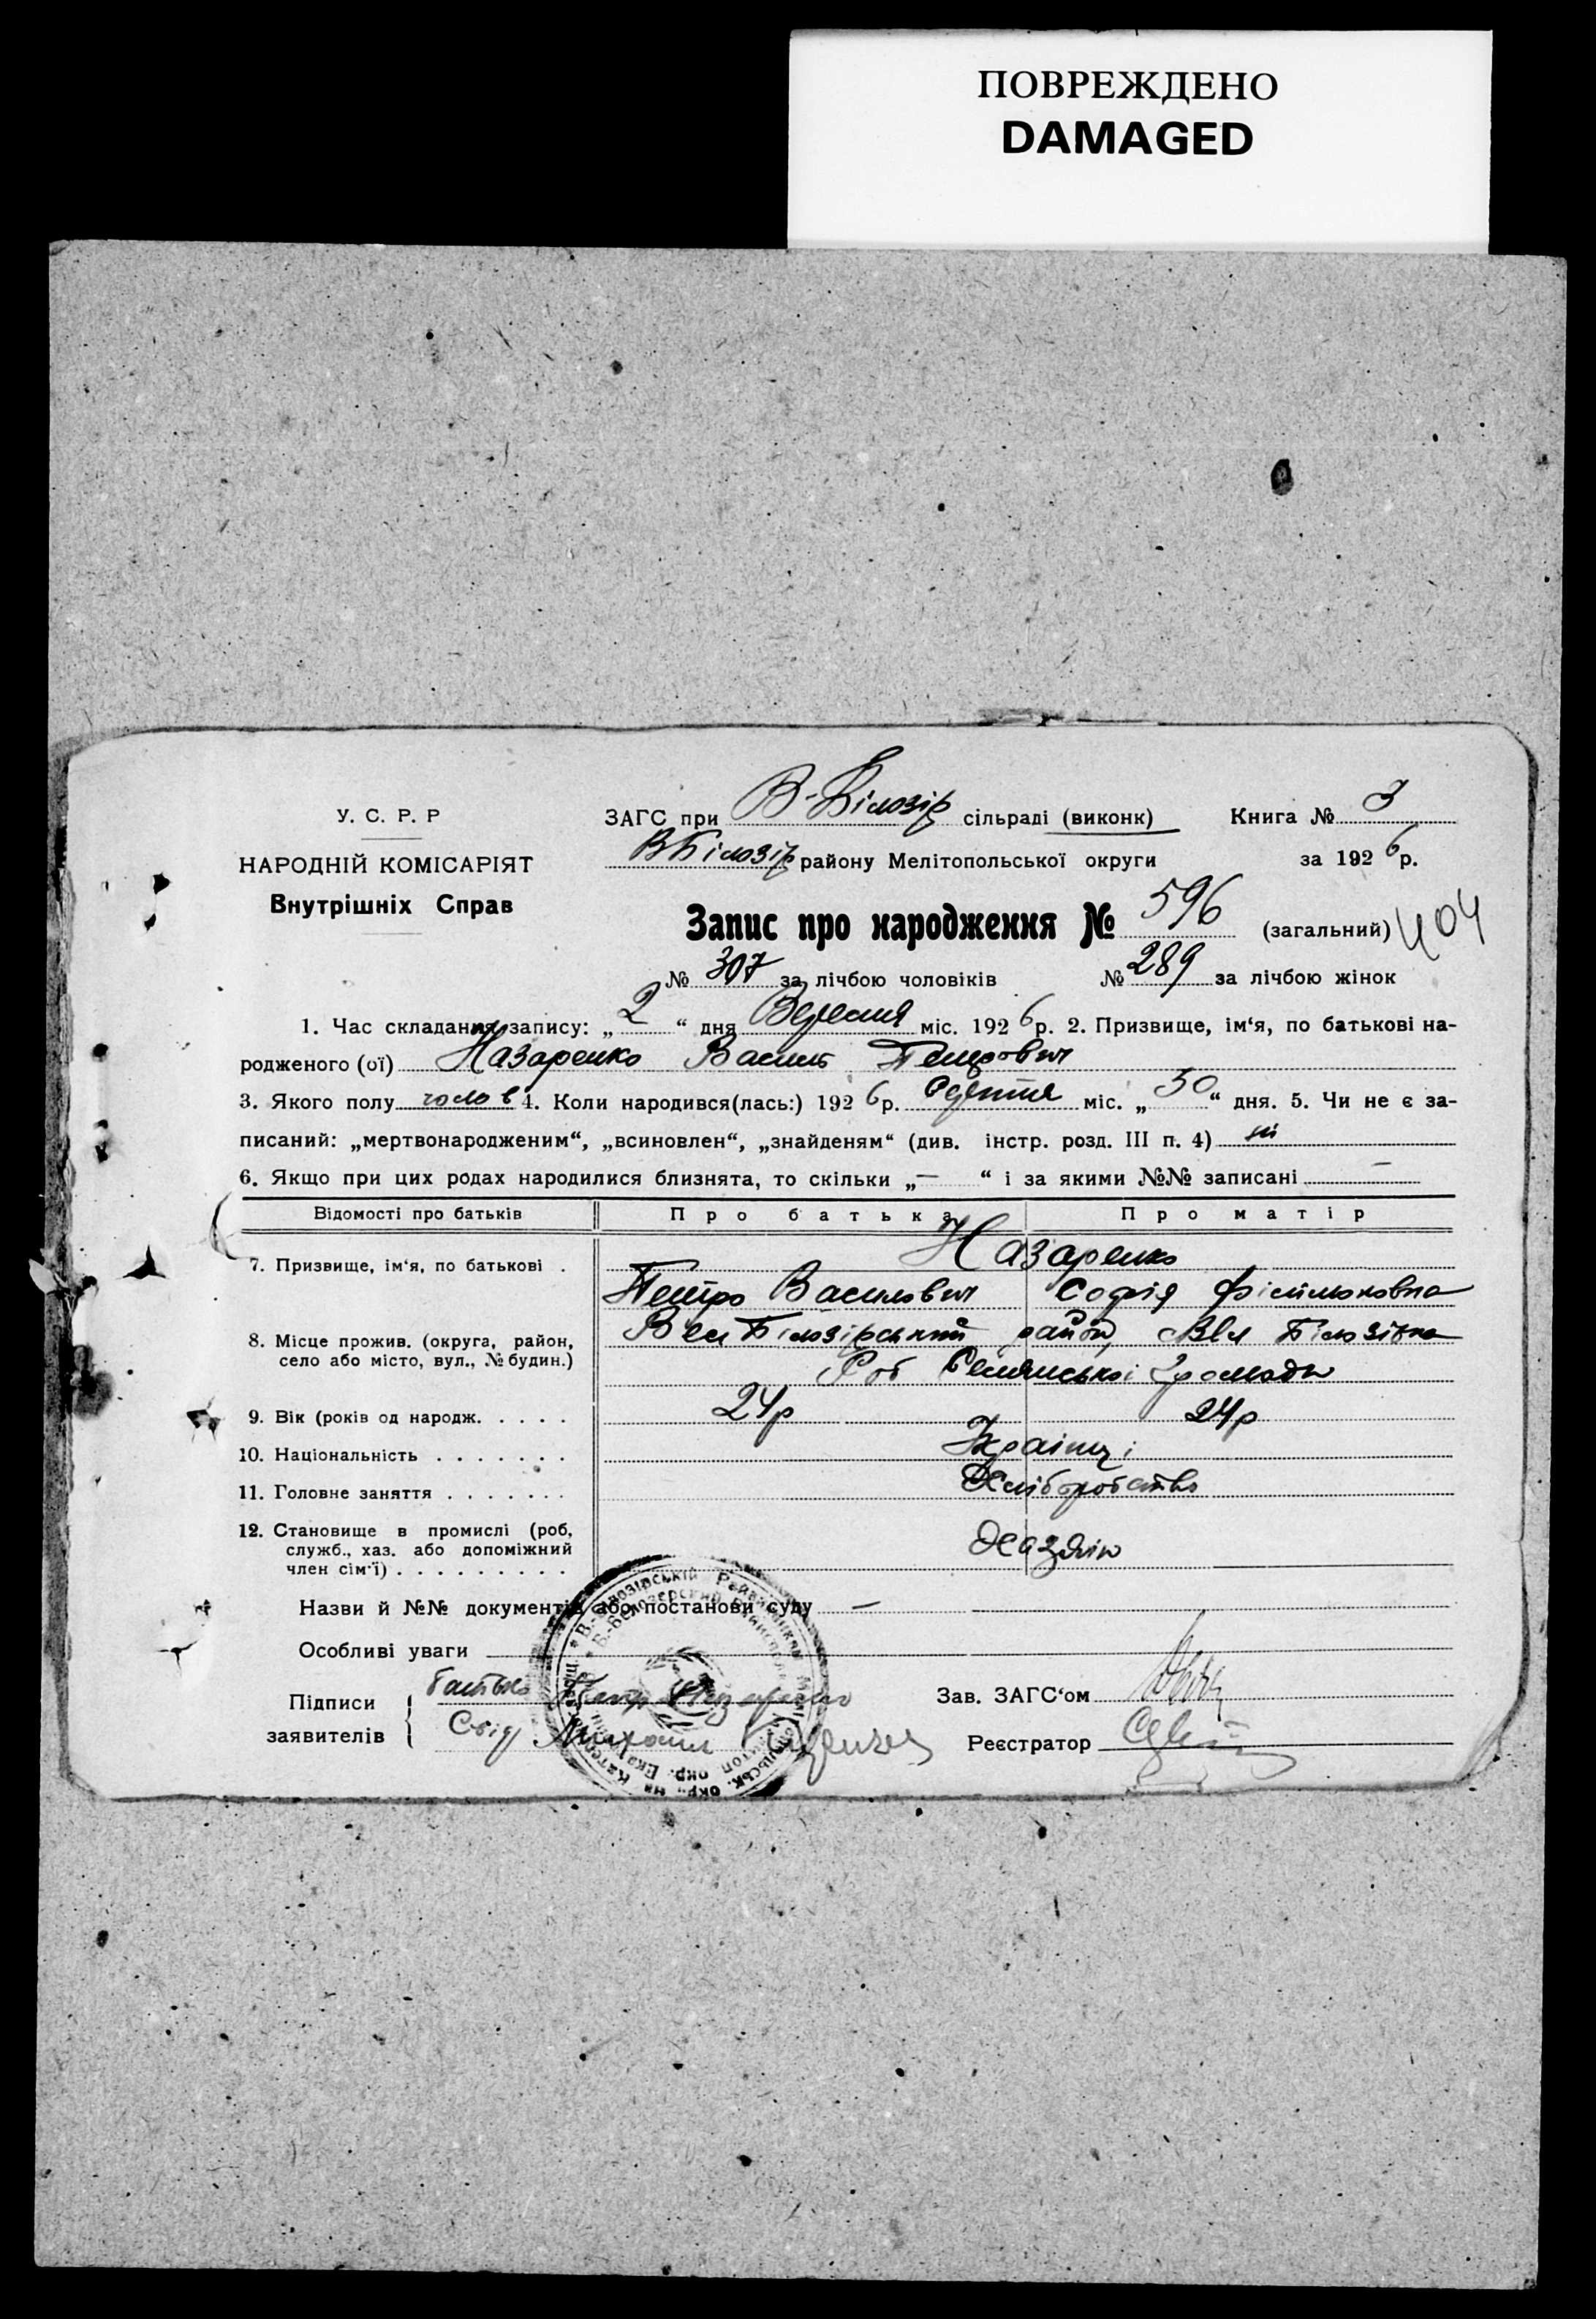 ПОВРЕЖДЕНО
DAMAGED
У. С. Р. Р
НАРОДНІЙ КОМІСАРІЯТ
Внутрішніх Справ
ЗАГС при В-Білозір сільраді (виконк) Книга № 3
ВБілозір району Мелітопольської округи за 1926 р.
Запис про народження № 596 (загальний) 404
№ 307 за лічбою чоловіків № 289 за лічбою жінок
1. Час складання запису: „ 2 “ дня Вересня міс. 1926 р. 2. Призвище, ім‘я, по батькові на-
родженого (ої) Назаренко Василь Петрович
3. Якого полу чолов 4. Коли народився(лась:) 1926 р. Серпня міс. „ 30 “ дня. 5. Чи не є за-
писаний: „мертвонародженим“, „всиновлен“, „знайденям“ (див. інстр. розд. III п. 4) ні
6. Якщо при цих родах народилися близнята, то скільки „ — “ і за якими №№ записані —
Відомості про батьків Про батька Про матір
7. Призвище, ім‘я, по батькові . Назаренко
Петро Васильович Софія
8. Місце прожив. (округа, район, село або місто, вул., № будин.) Вел Білозірський район, Вел Білозірка
Селянської громади
9. Вік (років од народж. . . . . 24р 24р
10. Національність . . . . . . . Українці
11. Головне заняття . . . . . . . Хліборобство
12. Становище в промислі (роб, служб., хаз. або допоміжний член сім‘ї) . . . . . . . . . Хазяїн
Назви й №№ документів або постанови суду —
Особливі уваги
Підписи заявителів батько Петр Назаренко Зав. ЗАГС‘ом
Свід Михаил Реєстратор